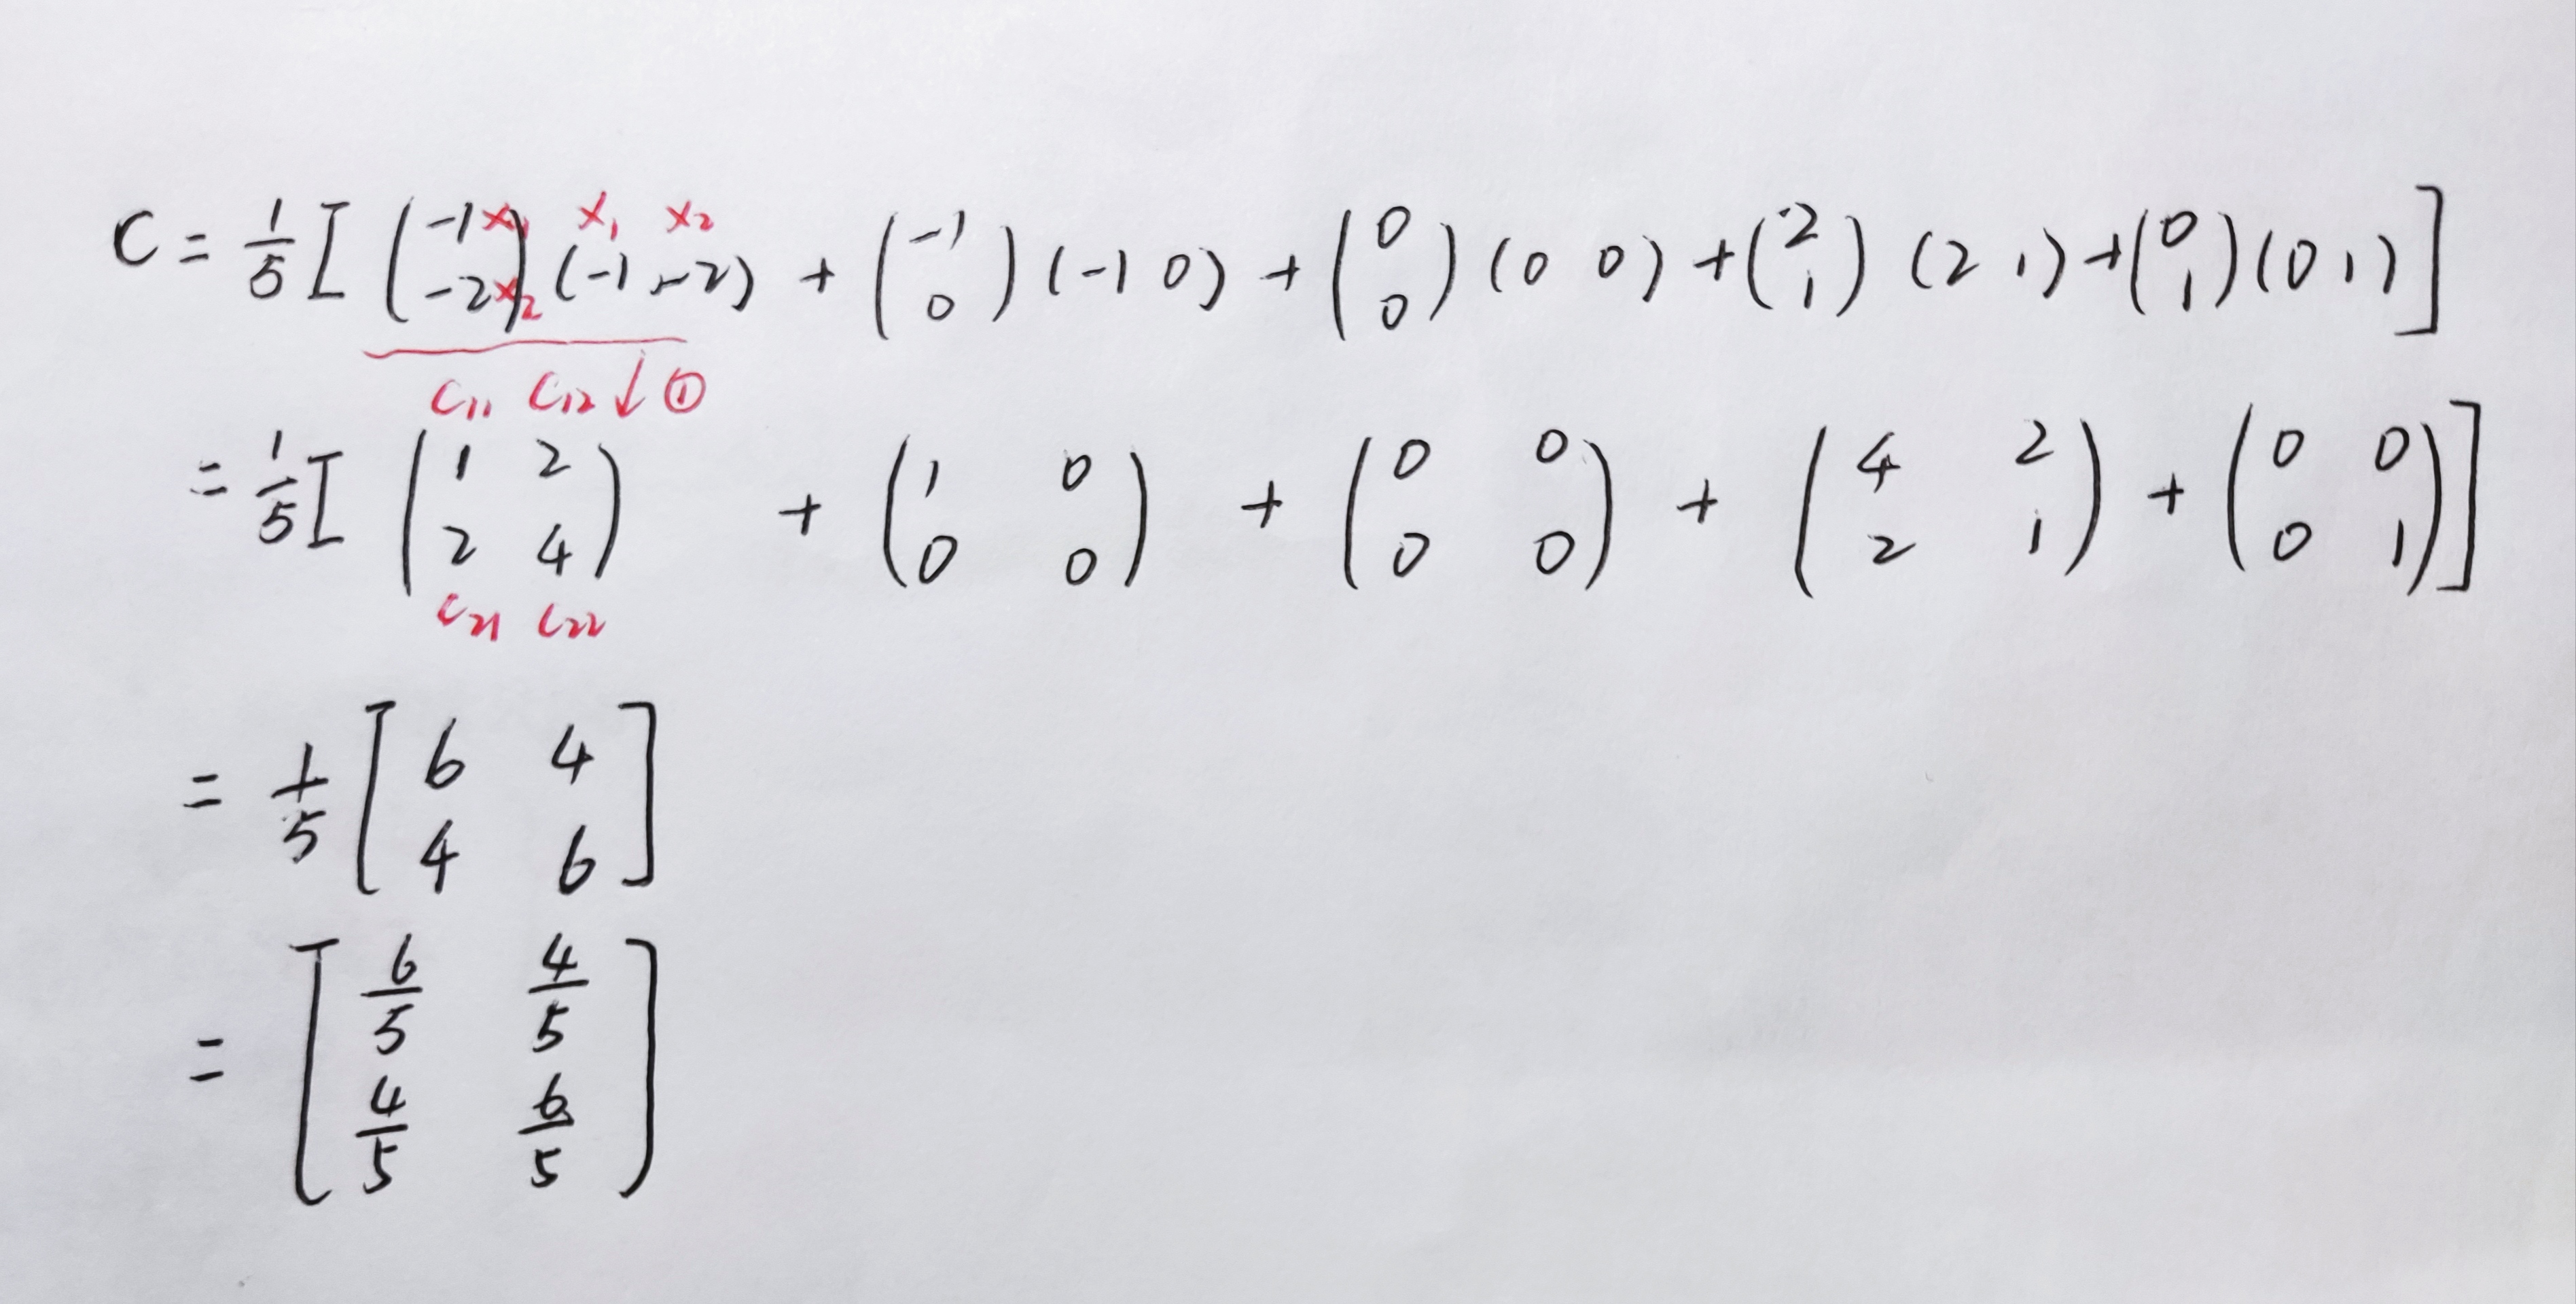 C = 1/5 [ (-1 x₁ / -2 x₂) (-1 -2) + (-1 / 0) (-1 0) + (0 / 0) (0 0) + (2 / 1) (2 1) + (0 / 1) (0 1) ]
x₁ x₂
C₁₁ C₁₂ ↓ ①
= 1/5 [ (1 2 / 2 4) + (1 0 / 0 0) + (0 0 / 0 0) + (4 2 / 2 1) + (0 0 / 0 1) ]
C₂₁ C₂₂
= 1/5 [ 6 4 / 4 6 ]
= [ 6/5 4/5 / 4/5 6/5 ]